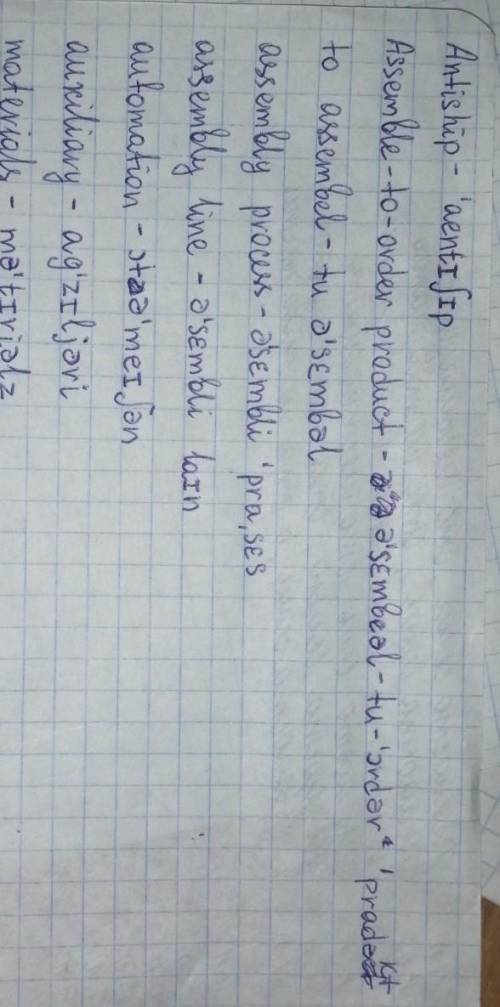 Antiship - 'aentIʃIp
Assemble-to-order product - ə'sɛmbeəl-tu-'ɔrdər 'pradəkt
to assembel - tu ə'sɛmbəl
assembly process - ə'sɛmbli 'pra,sɛs
assembly line - ə'sɛmbli laIn
automation - ɔtə'meIʃən
auxiliary - ag'zIljəri
materials - mə'tIriəlz